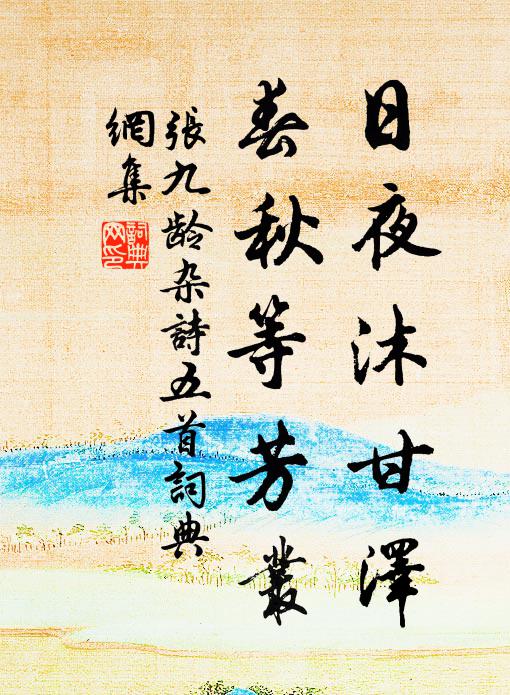 日夜沐甘澤
春秋等芳叢
張九龄杂詩五首詞典
網集
詞典
网印